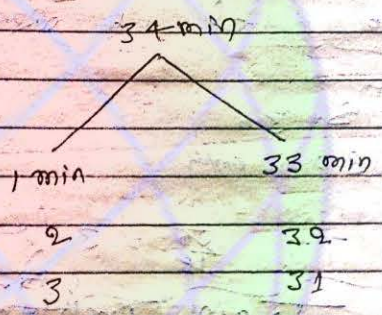 34 min
1 min 33 min
2 32
3 31